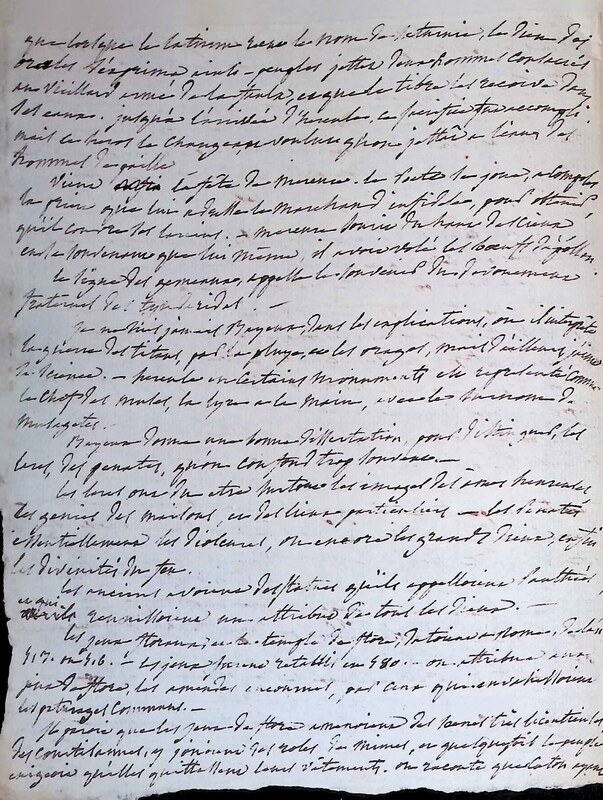 que lorsque le latium reçut le nom de saturnie, le dieu des
oracles s'exprima ainsi - peuples jettez deux hommes consacrés
au vieillard armé de la faulx, et que le tibre les reçoive dans
ses eaux. jusqu'à l'arrivée d'hercule, ce sacrifice fut accompli
mais ce heros le changea, et voulut qu'on jettât à l'eau des
hommes de paille
Vient la fête de mercure. le poete se joue, a
la priere que lui adresse le marchand infidele, pour obtenir
qu'il ses larcins. - mercure sourit du haut des cieux
en se souvenant que lui même, il avoit volé les boeufs d'apollon.
le signe des gemeaux, appelle le souvenir du devouement
fraternel des tyndarides. -
Bayeux dans les explications, où il interprète
la guerre des titans, par la pluye, et les orages, mais d'ailleurs,
de science. - hercule en certains monuments est représenté comme
le chef des muses, la lyre à la main, avec le surnom de
musagetes.
Bayeux donne une bonne dissertation, pour distinguer, les
lares, des penates, qu'on confond trop souvent. -
les lares ont du etre surtout les images des âmes heureuses
les genies des maisons, et des lieux particuliers - les penates
essentiellement les dioscures, ou encore les grands dieux, enfin
les divinités du feu.
les anciens avoient des statues qu'ils appelloient panthées,
et qui reunissoient un attribut de tous les dieux. -
les jeux floraux, et le temple de flore, datoient à Rome, de l'an
513. ou 516. - les jeux furent retablis, en 580. - on attribua aux
jeux de flore, les amendes encourues, par ceux qui envahissoient
les pâturages communs. -
il paroit que les jeux de flore amenoient des scenes très licentieuses
des courtisannes, y jouoient les roles de mimes, et quelquefois le peuple
exigeoit qu'elles quittassent leurs vêtements. on raconte que caton ayant